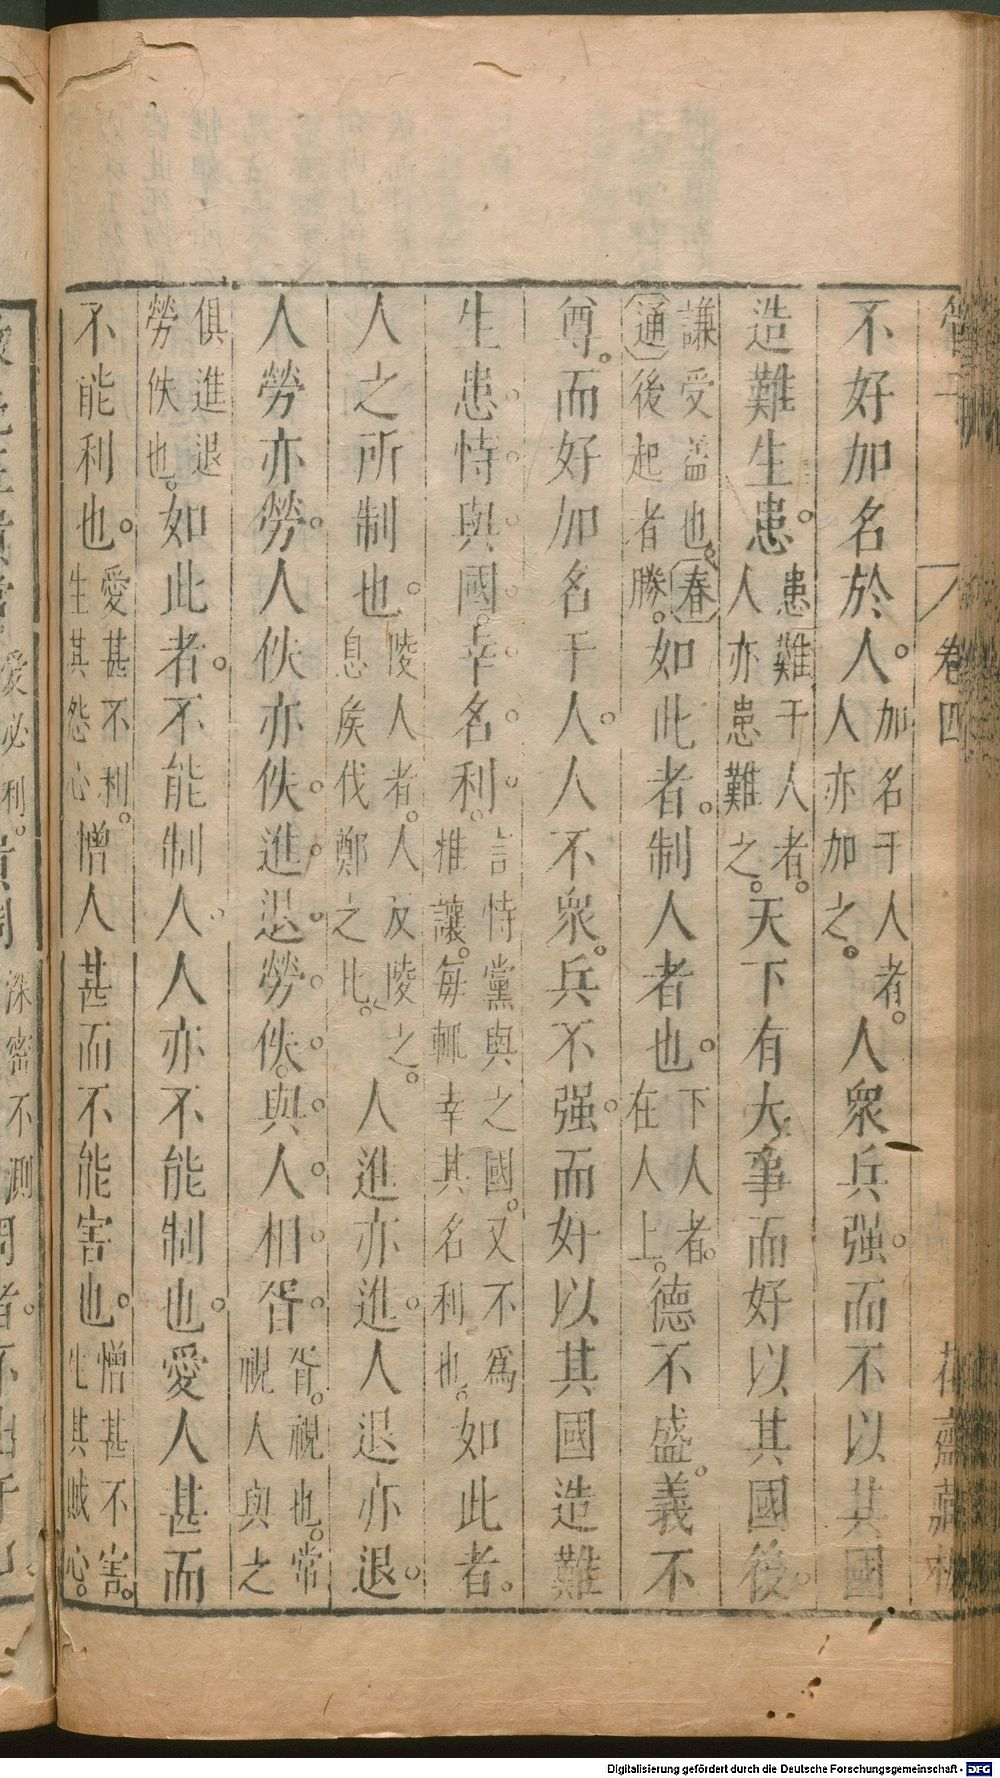 管子　卷四　花齋藏板
不好加名於人。加名于人者。人亦加之。人衆兵强。而不以其國
造難生患。患難于人者。人亦患難之。天下有大事而好以其國後。
謙受益也。春通後起者勝。如此者。制人者也。下人者。在人上。德不盛。義不
尊。而好加名于人。人不衆。兵不强。而好以其國造難
生患。恃與國。幸名利。言恃黨與之國。又不爲推讓。每輒幸其名利也。如此者。
人之所制也。陵人者。人反陵之。息矦伐鄭之比。人進亦進。人退亦退。
人勞亦勞。人佚亦佚。進退勞佚。與人相胥。胥。視也。常視人與之
俱進退勞佚也。如此者。不能制人。人亦不能制也。愛人甚而
不能利也。愛甚不利。生其怨心。憎人甚而不能害也。憎甚不害。生其賊心。
愛必利。
深密不測
周者。不出于口。
Digitalisierung gefördert durch die Deutsche Forschungsgemeinschaft - DFG